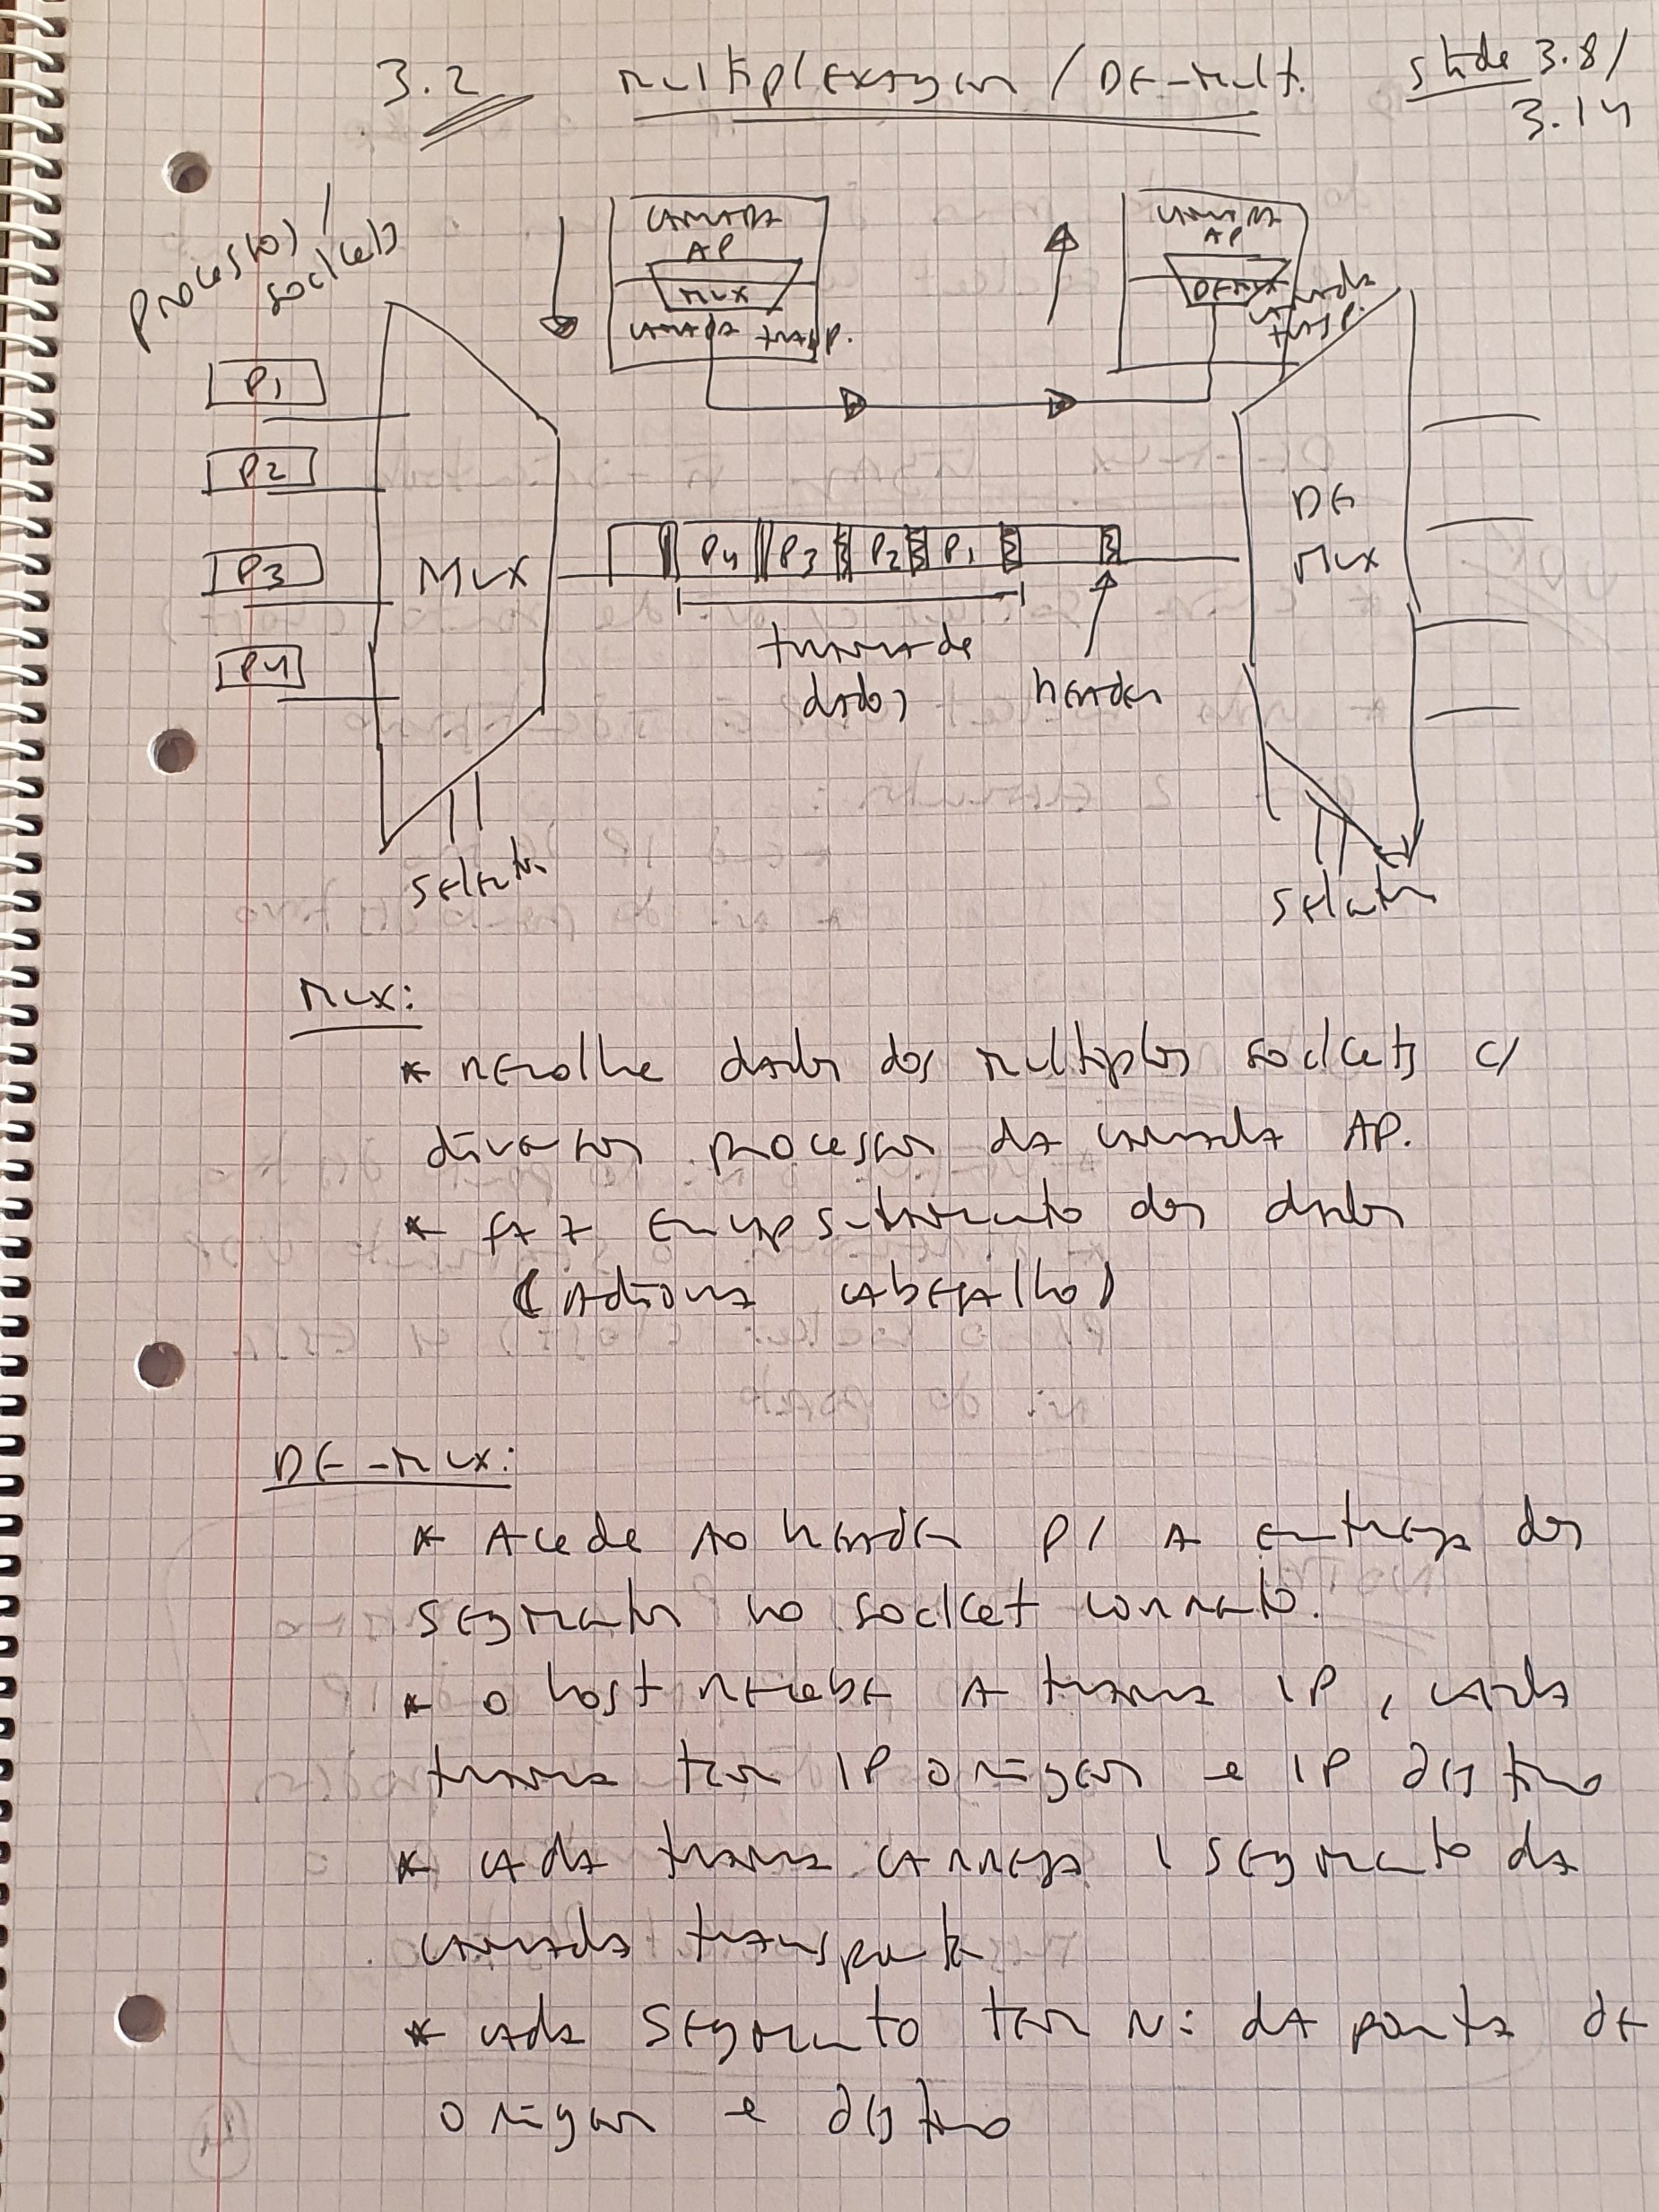 3.2 Multiplexagem / DE-Mult. slide 3.8/
3.14
Processos /
sockets
CAMADA
AP
MUX
CAMADA transp.
CAMADA
AP
DEMUX
camada
transp.
P1
P2
P3
P4
MUX
P4 P3 P2 P1
DE
MUX
trama de
dados
header
selector
selector
MUX:
* recolhe dados dos multiplos sockets c/
diversos processos da camada AP.
* faz encapsulamento dos dados
(adiciona cabeçalho)
DE-MUX:
* Acede ao header p/ a entrega dos
segmentos no socket correcto.
* o host recebe a trama IP, cada
trama tem IP origem e IP destino
* cada trama carrega 1 segmento da
camada transporte
* cada segmento tem nº da porta de
origem e destino